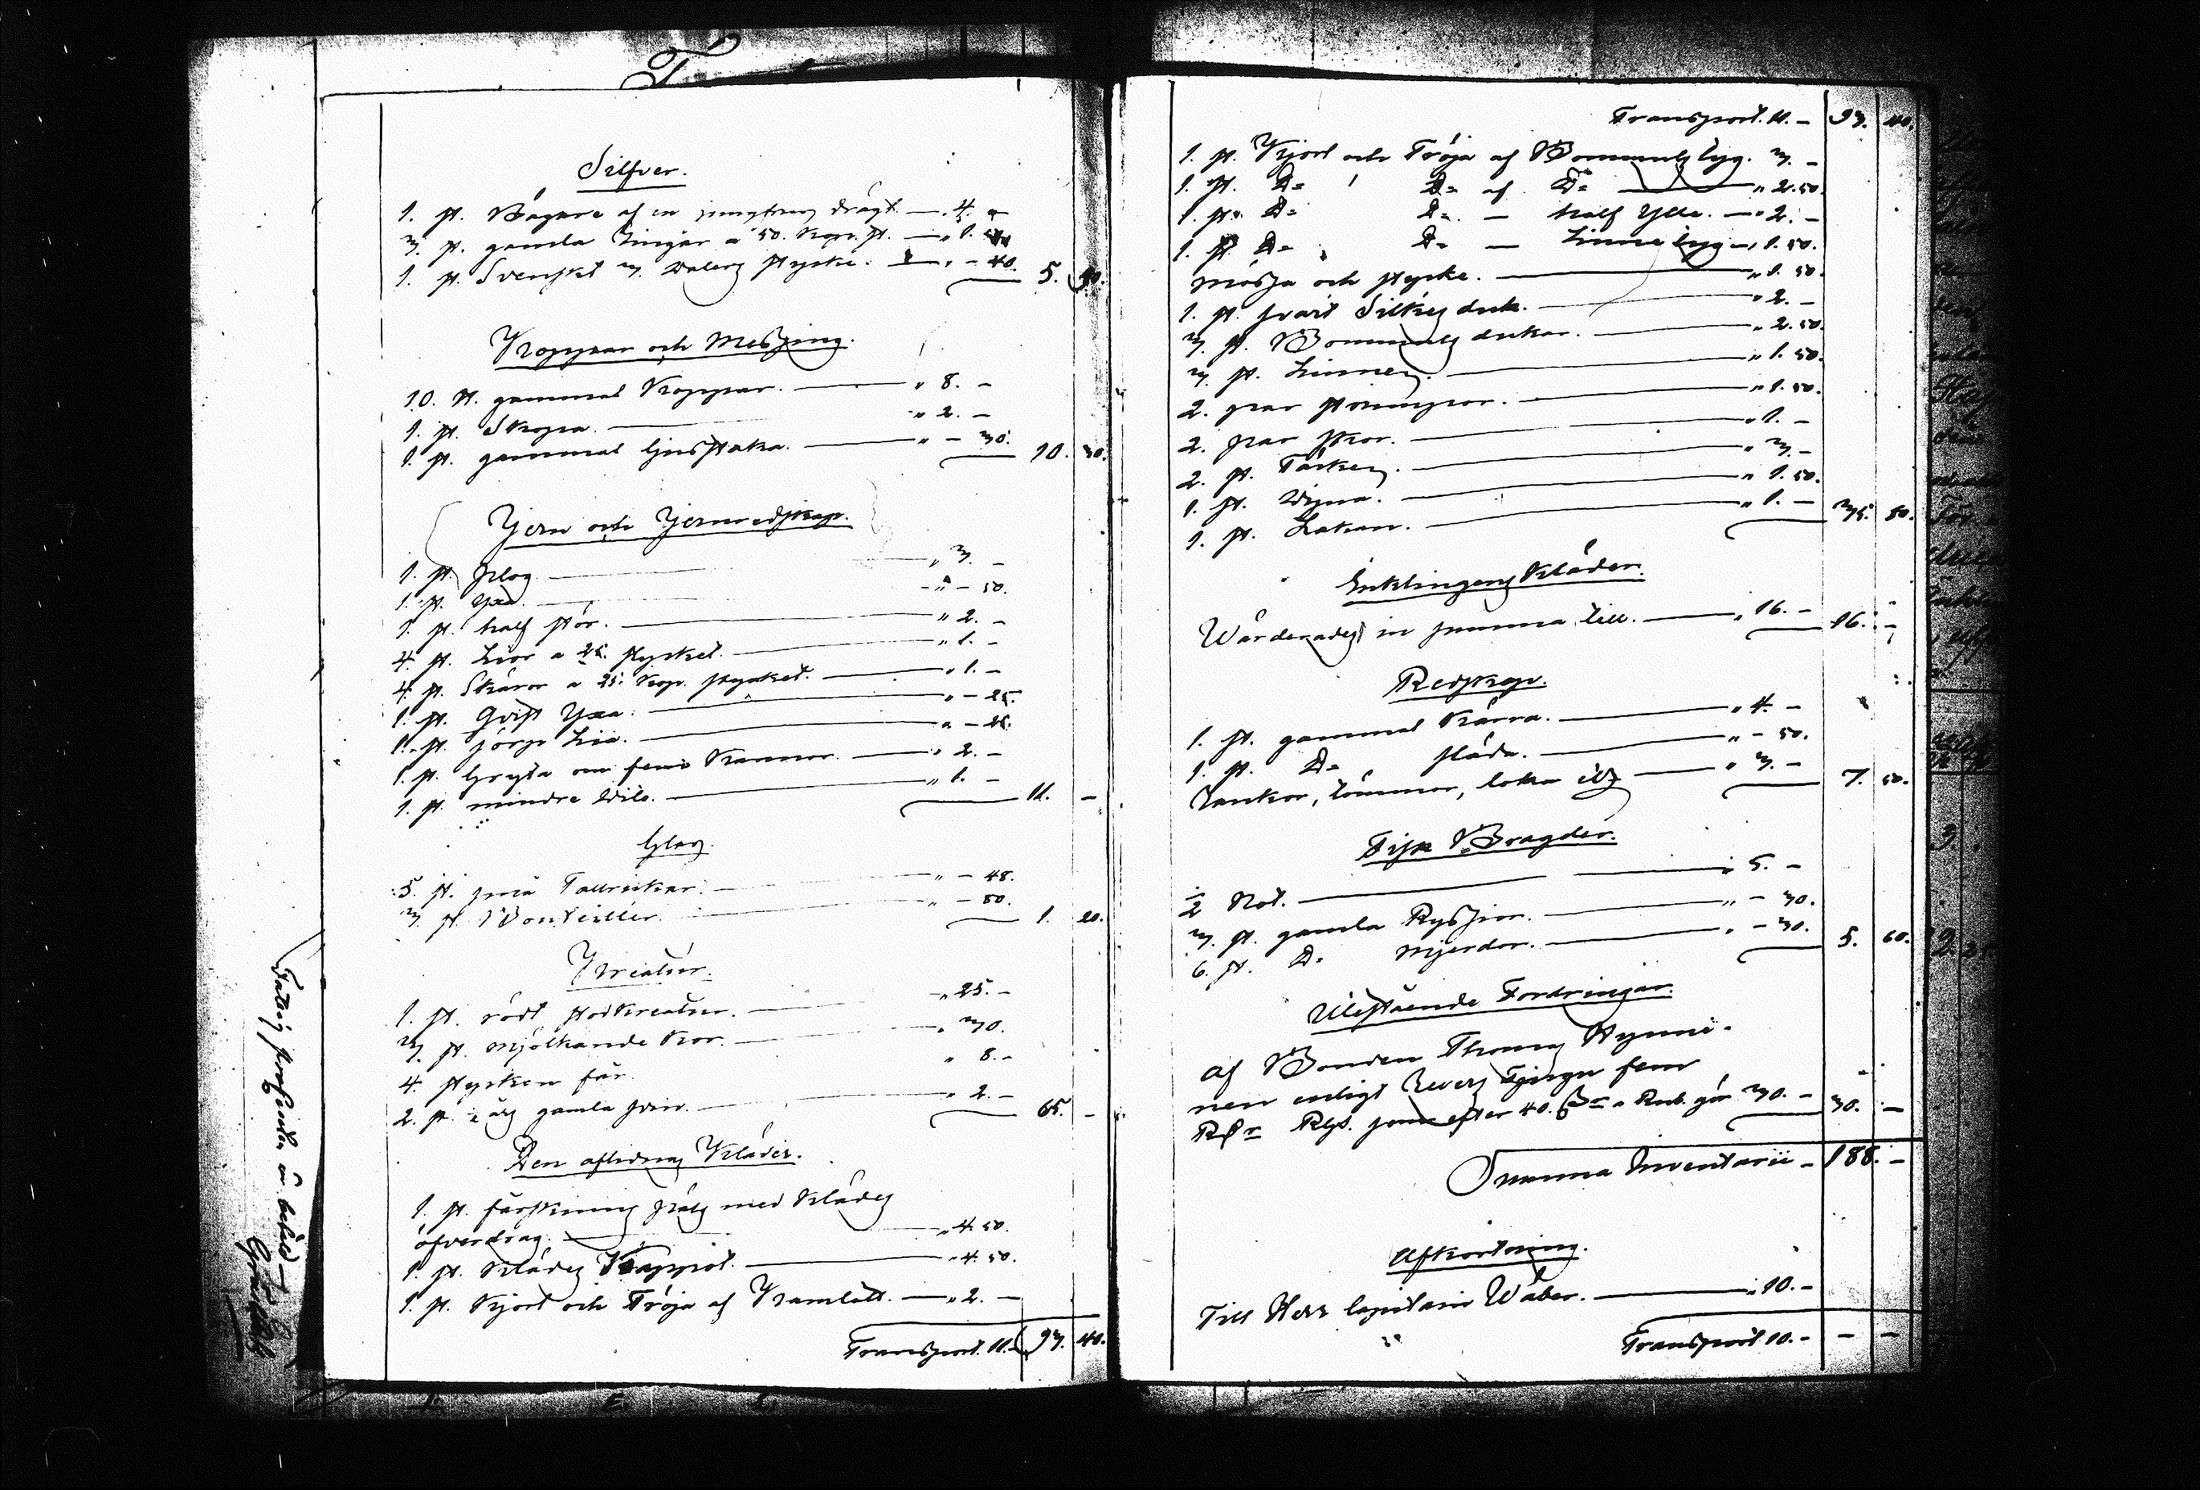 Silfver.
1. st. Bägare af en jungfrus drägt. — 4. —
3 st. gamla Ringar a 50. Kop. st. — " 1. 50
1. st. Svenskt 3. Dalers stycke. — " — 40. 5. 90.
Koppar och Messing.
10. st. gammal Koppar. — " 8. —
1. st. Skopa. — " 2. —
1. st. gammal ljusstaka. — " — 30. 10. 30.
Jern och Jernredskap.
1. st. plog — " 3. —
1. st. Yxa. — " — 50.
1. st. half stör. — " 2. —
4. st. Liar a 25. stycket. — " 1. —
4. st. Skäror a 25. Kop. stycket. — " 1. —
1. st. Qvist Yxa. — " — 25.
1. st. Lia. — " — 25.
1. st. Gryta om fem Kannor. — " 2. —
1. st. mindre dito. — " 1. — 11. —
Glas.
5. st. små Tallrickar. — " — 48.
3 st. Bouteiller. — " — 50. 1. 20.
Kreatur.
1. st. rödt stokreatur. — " 25. —
3. st. mjölkande Kor. — " 30.
4. stycken får. " 8. —
2. st. ½ års gamla svin. — " 2. — 65. —
Den aflidnas Kläder.
1. st. fårskinns päls med Klädes
öfverdrag. — " 4. 50.
1. st. Klädes Kappot. — " 4. 50.
1. st. Kjort och Tröja af Kamlått. — " 2. —
Transport. 11. — 93. 40.
Transport. 11. — 93. 40.
1. st. Kjort och Tröja af Bomuls tyg. 3. —
1. st. D= D= af D= — " 2. 50.
1. st. D= D=. — half Ylle. — " 2. —
1. st. D= D= — Linne tyg — " 1. 50.
mössa och stycke. — " 1. 50.
1. st. svart Silkes duk. — " 2. —
3. st. Bomuls dukar. — " 2. 50.
3. st. Linnen. — " 1. 50.
2. par strumpor. — " 1. 50.
2. par skor. — " 1. —
2. st. Täcken. — " 3. —
1. st. Dyna. — " 1. 50.
1. st. Lakan. — " 1. — 35. 50.
Enklingens Kläder.
Wärderades in summa till. — " 16. — 16. —
Redskap.
1. st. gammal Kärra. — " 4. —
1. st. D= släda. — " — 50.
Rankor, tömmar, loka — " 3. — 7. 50.
Fisk Bragder.
½ Not. — " 5. —
3. st. gamla Ryssjor. — " — 30.
6. st. D= mjerdar. — " — 30. 5. 60.
Utestående Fordringar.
af Bonden Thomas Hynni-
nen enligt Revers Tjugu fem
Rbr Rgs. som efter 40. a Rub. gör 30. — 30. —
Summa Inventarii — 188. —
Afkortning.
Till Herr Capitain Wåber. — " 10. —
Transport 10. — — —